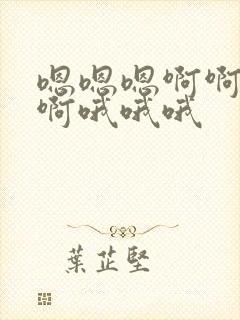 嗯嗯嗯啊啊
啊哦哦哦
葉芷堅